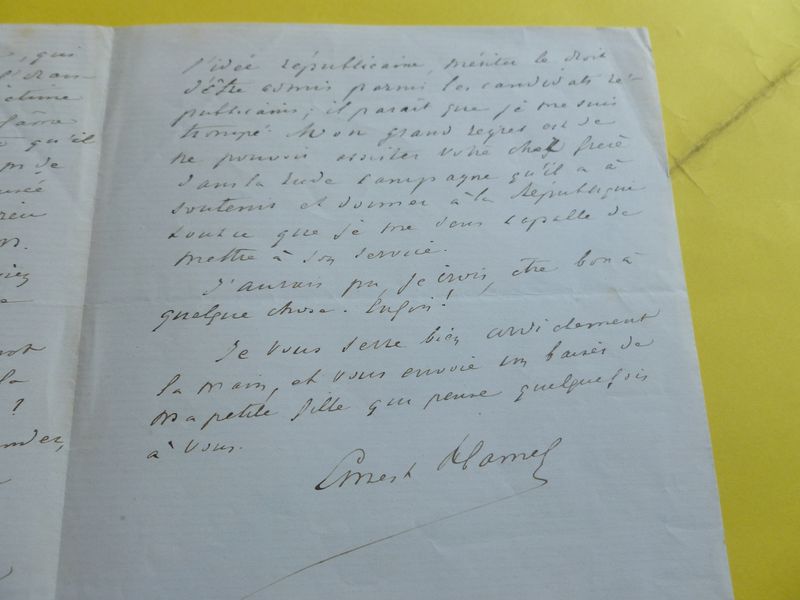 , qui
l'idée républicaine, mériter le droit
d'être admis parmi les candidats ré-
publicains; il parait que je me suis
trompé. Mon grand regret est de
ne pouvoir assister votre cher frère
dans la rude campagne qu'il a à
soutenir et donner à la République
ce que je me sens capable de
mettre à son service.
J'aurais pu, je crois, être bon à
quelque chose. Enfin!
Je vous serre bien cordialement
la main, et vous envoie un baiser de
ma petite fille qui pense quelquefois
à vous.
Ernest Hamel
victime
qu'il
de
la
?